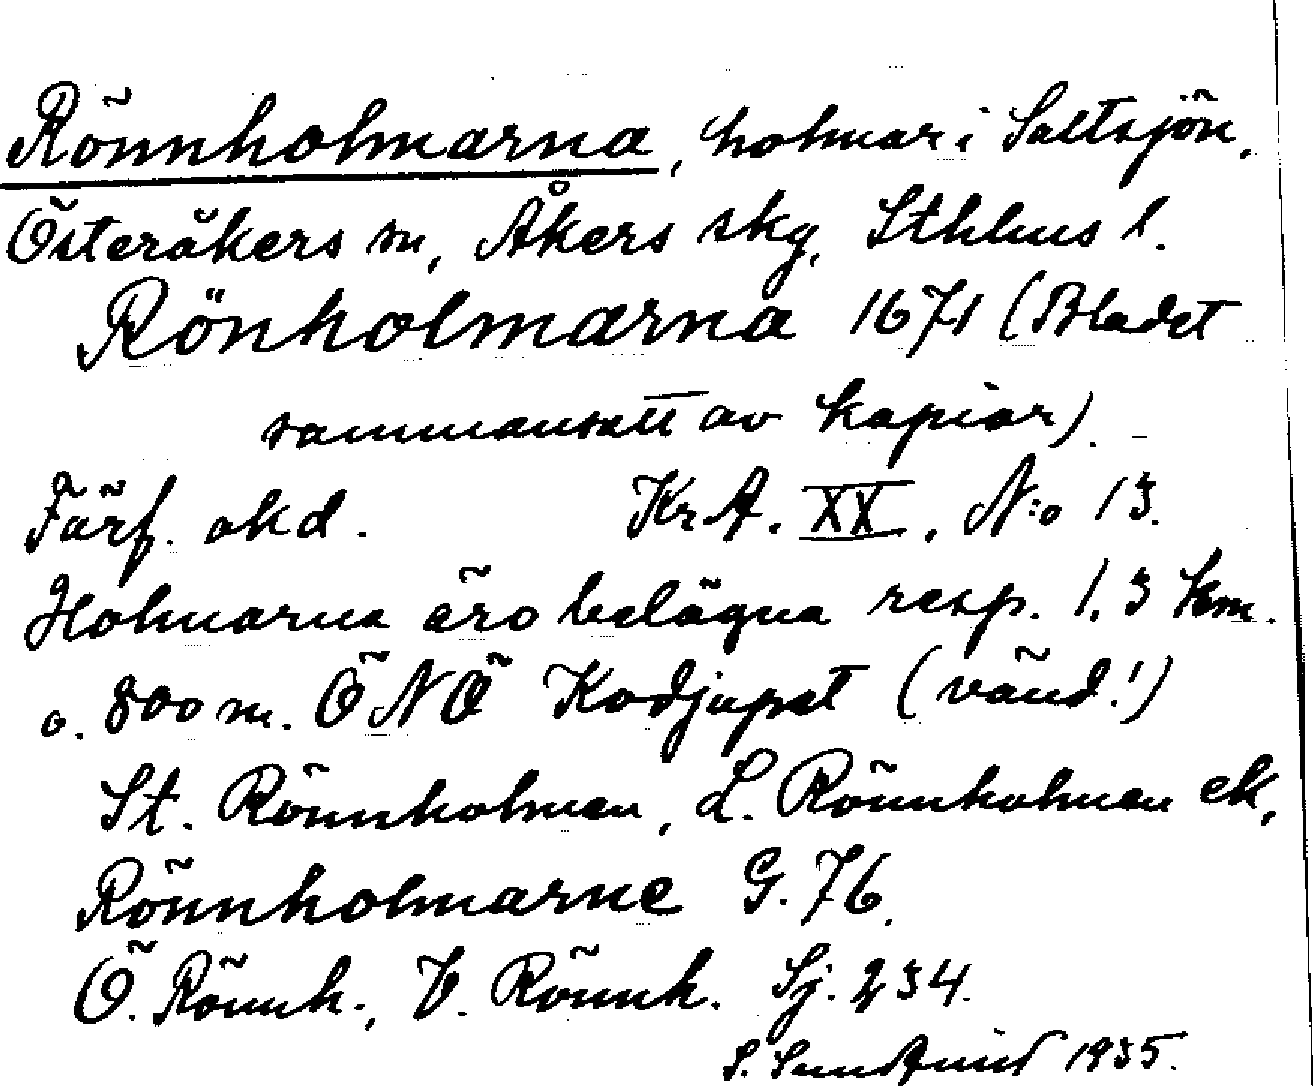 Rönnholmarna, holmar i Saltsjön,
Österåkers sn, Åkers skg, Sthlms l.
Rönholmarna 1671 (Bladet
sammansatt av kopior).
Förf. okd. KrA. XX, N:o 13.
Holmarna äro belägna resp. 1,3 km.
o. 800 m. ÖNÖ Kodjupet (vänd!)
St. Rönnholmen, L. Rönnholmen ek,
Rönnholmarne G. 76.
Ö. Rönnh., V. Rönnh. Sj. 234.
S. 1935.